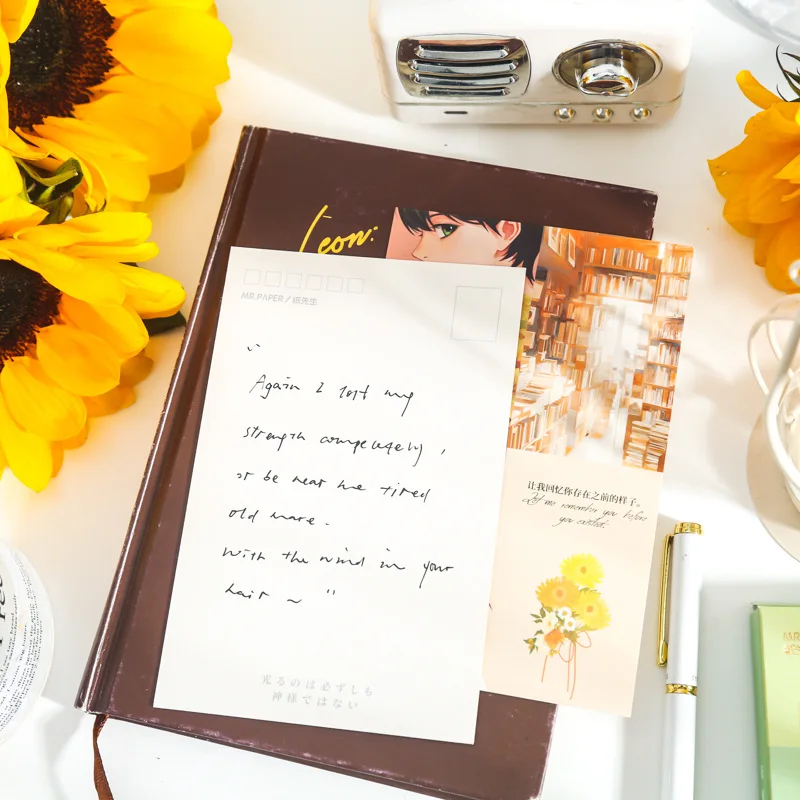 Leon:
MR.PAPER / 纸先生
"
Again I lost my
strength completely,
or be near me tired
old mare.
With the wind in your
hair ~ "
光るのは必ずしも
神様ではない
让我回忆你存在之前的样子。
Let me remember you before
you existed.